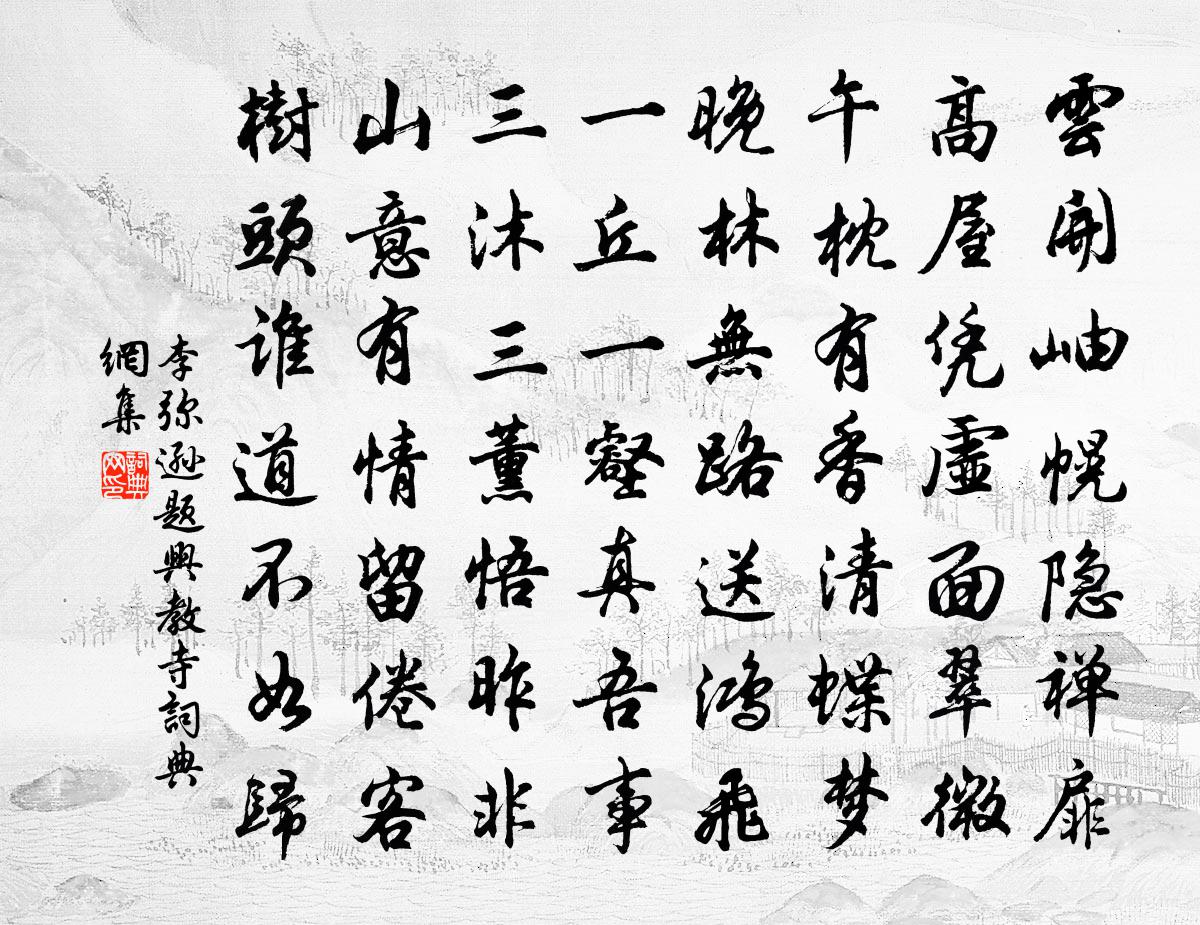 雲開岫幌隐禅扉
高屋凭虛面翠微
午枕有香清蝶梦
晚林無路送鴻飛
一丘一壑真吾事
三沐三薰悟昨非
山意有情留倦客
樹頭誰道不如歸
李弥遜題興教寺詞典
網集
詞典网印